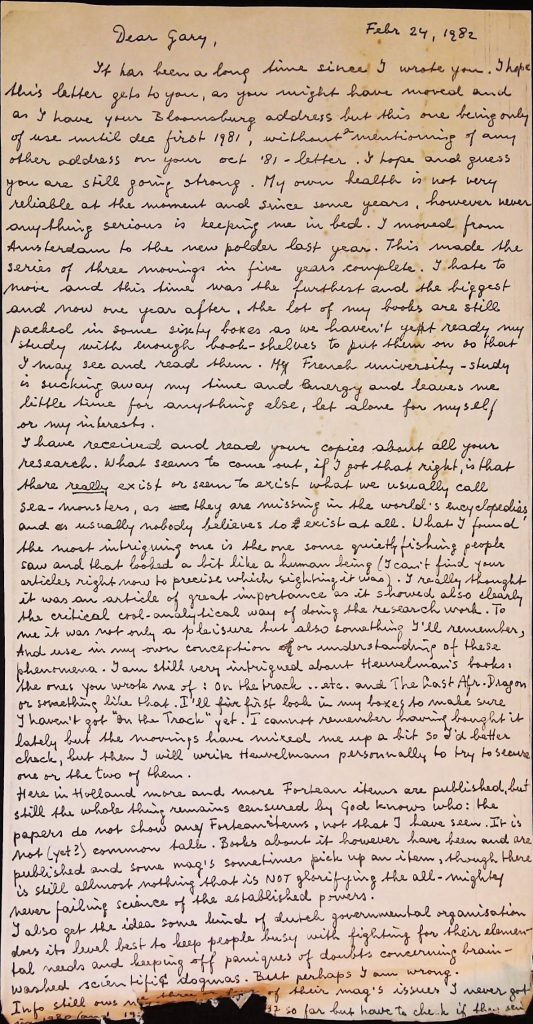 Dear Gary,
Febr 24, 1982
It has been a long time since I wrote you. I hope
this letter gets to you, as you might have moved and
as I have your Bloomsburg address but this one being only
of use until dec first 1981, without a mentioning of any
other address on your oct '81 - letter. I hope and guess
you are still going strong. My own health is not very
reliable at the moment and since some years, however never
anything serious is keeping me in bed. I moved from
Amsterdam to the new polder last year. This made the
series of three movings in five years complete. I hate to
move and this time was the furthest and the biggest
and now one year after, the lot of my books are still
packed in some sixty boxes as we haven't yet ready my
study with enough book-shelves to put them on so that
I may see and read them. My French university-study
is sucking away my time and energy and leaves me
little time for anything else, let alone for myself
or my interests.
I have received and read your copies about all your
research. What seems to come out, if I got that right, is that
there really exist or seem to exist what we usually call
sea-monsters, as they are missing in the world's encyclopedias
and as usually nobody believes to exist at all. What I found
the most intriguing one is the one some quietly fishing people
saw and that looked a bit like a human being (I can't find your
articles right now to precise which sighting it was). I really thought
it was an article of great importance as it showed also clearly
the critical cool-analytical way of doing the research work. To
me it was not only a pleisure but also something I'll remember,
And use in my own conception or understanding of these
phenomena. I am still very intrigued about Heuvelman's books:
the ones you wrote me of: On the track .. etc. and The Last Afr. Dragon
or something like that. I'll first look in my boxes to make sure
I haven't got "On the Track" yet. I cannot remember having bought it
lately but the movings have mixed me up a bit so I'd better
check, but then I will write Heuvelmans personnally to try to secure
one or the two of them.
Here in Holland more and more Fortean items are published, but
still the whole thing remains censured by God knows who: the
papers do not show any Fortean items, not that I have seen. It is
not (yet?) common talk. Books about it however have been and are
published and some mag's sometimes pick up an item, though there
is still allmost nothing that is NOT glorifying the all-mighty
never failing science of the established powers.
I also get the idea some kind of dutch governmental organisation
does its level best to keep people busy with fighting for their elemen-
tal needs and keeping off paniques of doubts concerning brain-
washed scientific dogmas. But perhaps I am wrong.
Info still ows me three of their mag's issues I never got
so far but have to check if they